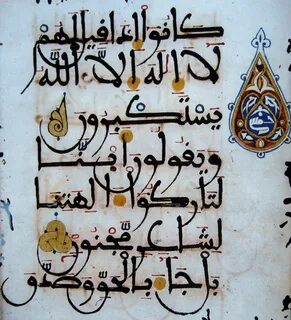 كانوا إذا قيل لهم
لا إله إلا الله
يستكبرون
ويقولون أئنا
لتاركوا آلهتنا
لشاعر مجنون
بل جاء بالحق وصدق